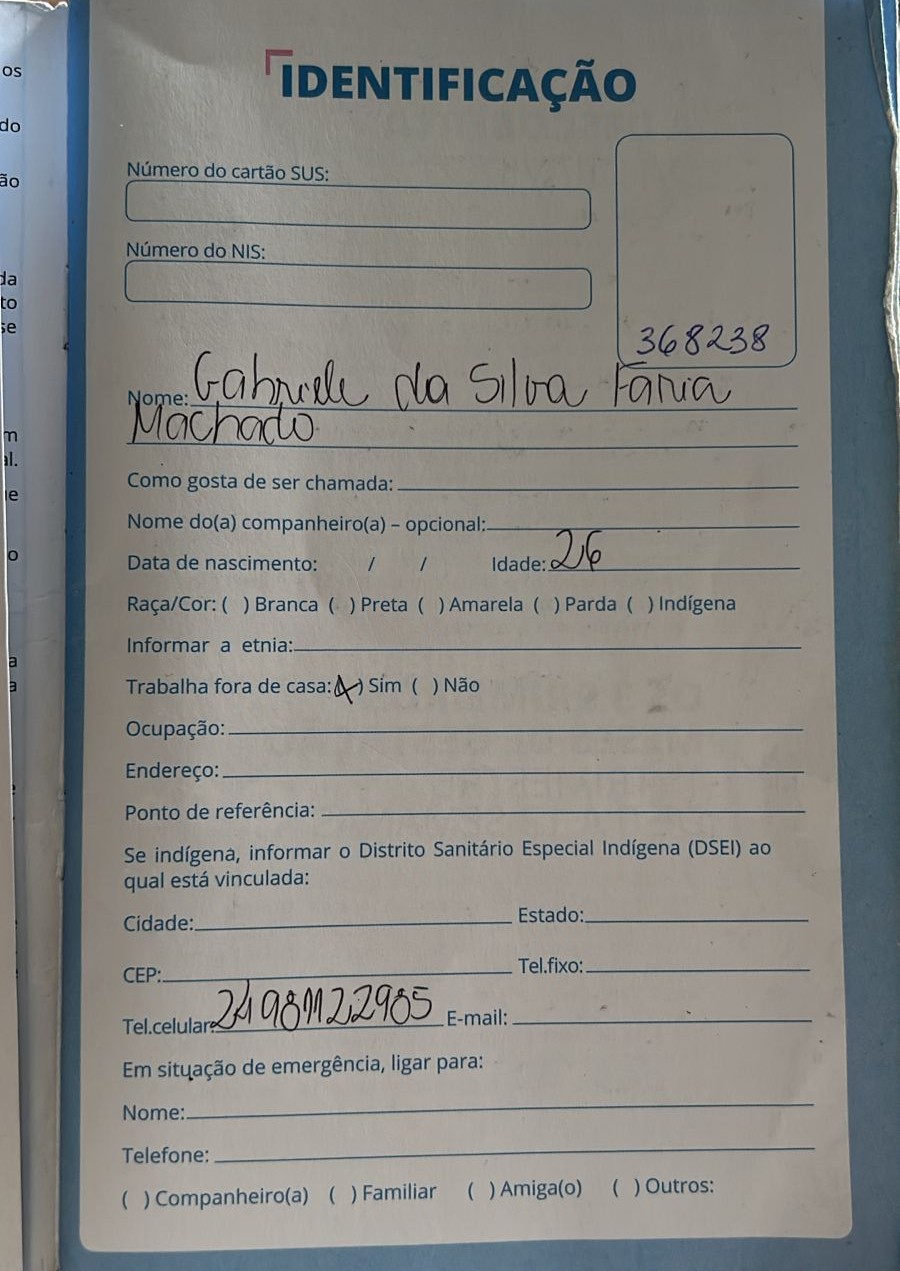 IDENTIFICAÇÃO
Número do cartão SUS:
Número do NIS:
368238
Nome: Gabriele da Silva Faria
Machado
Como gosta de ser chamada:
Nome do(a) companheiro(a) – opcional:
Data de nascimento: / / Idade: 26
Raça/Cor: ( ) Branca ( ) Preta ( ) Amarela ( ) Parda ( ) Indígena
Informar a etnia:
Trabalha fora de casa: (X) Sim ( ) Não
Ocupação:
Endereço:
Ponto de referência:
Se indígena, informar o Distrito Sanitário Especial Indígena (DSEI) ao
qual está vinculada:
Cidade: Estado:
CEP: Tel.fixo:
Tel.celular: 24981122985 E-mail:
Em situação de emergência, ligar para:
Nome:
Telefone:
( ) Companheiro(a) ( ) Familiar ( ) Amiga(o) ( ) Outros: